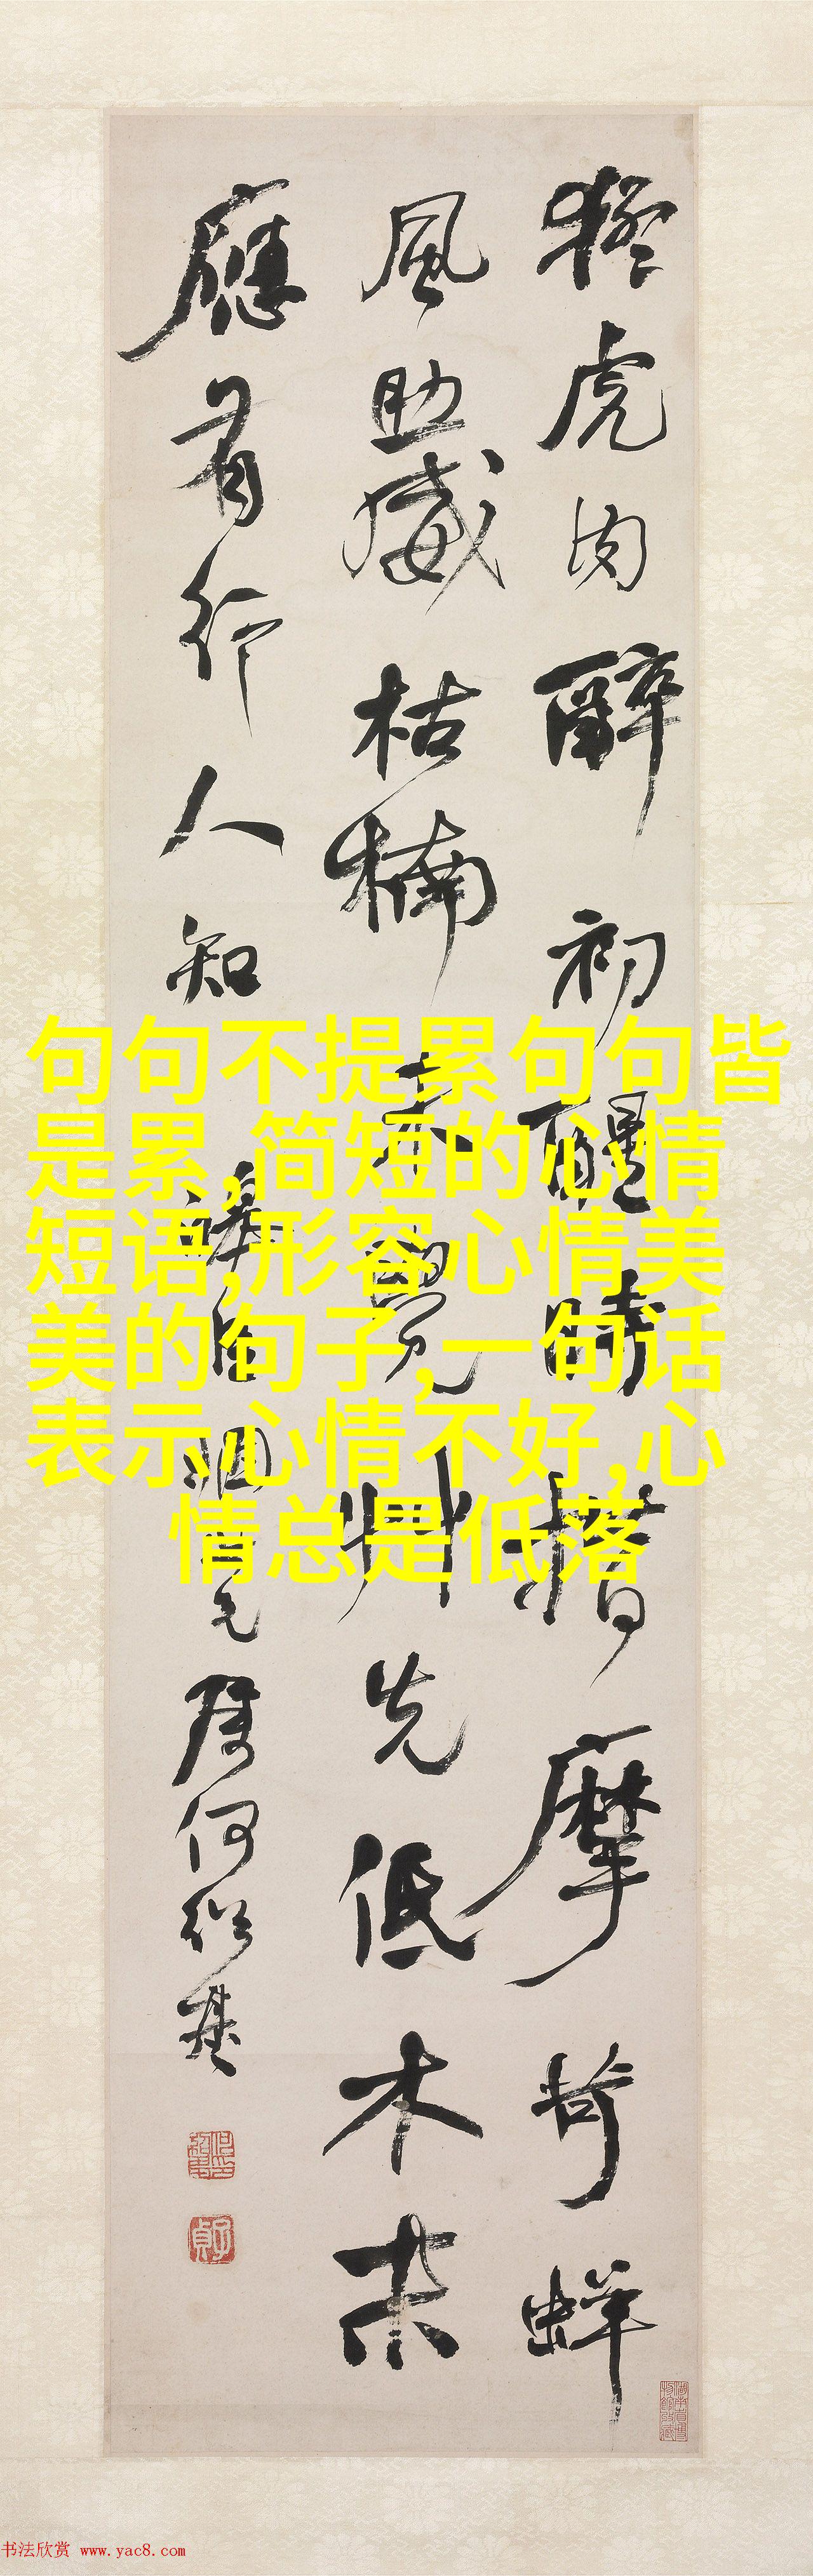 猛虎肉醉初醒時揩摩苛蛘
風助威枯楠未覺刈先低木末
應有行人知
何紹基
句句不提累句句皆
是累,简短的心情
短语,形容心情美
美的句子,一句话
表示心情不好,心
情总是低落
书法欣赏 www.yac8.com